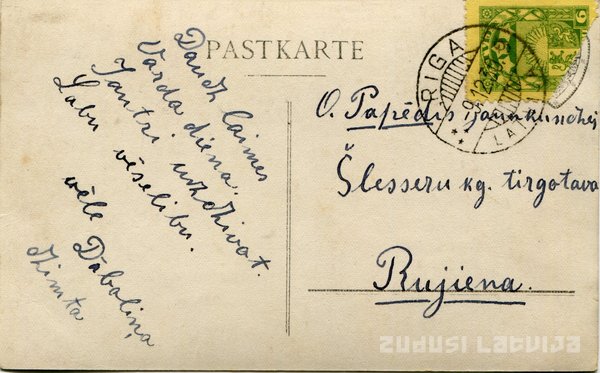 PASTKARTE
Daudz laimes
Varda diena.
Jautri uzdzivat.
Labu veselibu.
vēlē Dāboliņa,
dzimta
RIGA
LAT
6
O. Papēdis jaunkundzei
Šlesseru kg. tirgotava
Rujiena.
ZUDUSI LATVIJA